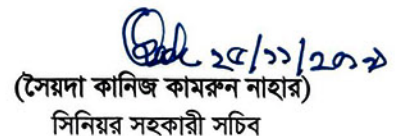 ২৫/১১/২০১৯
(সৈয়দা কানিজ কামরুন নাহার)
সিনিয়র সহকারী সচিব